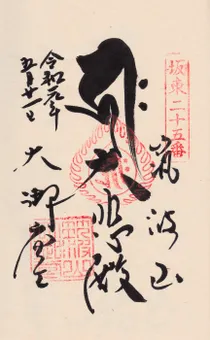 坂東二十五番
筑波山
大悲殿
大御堂
令和元年
五月廿一日